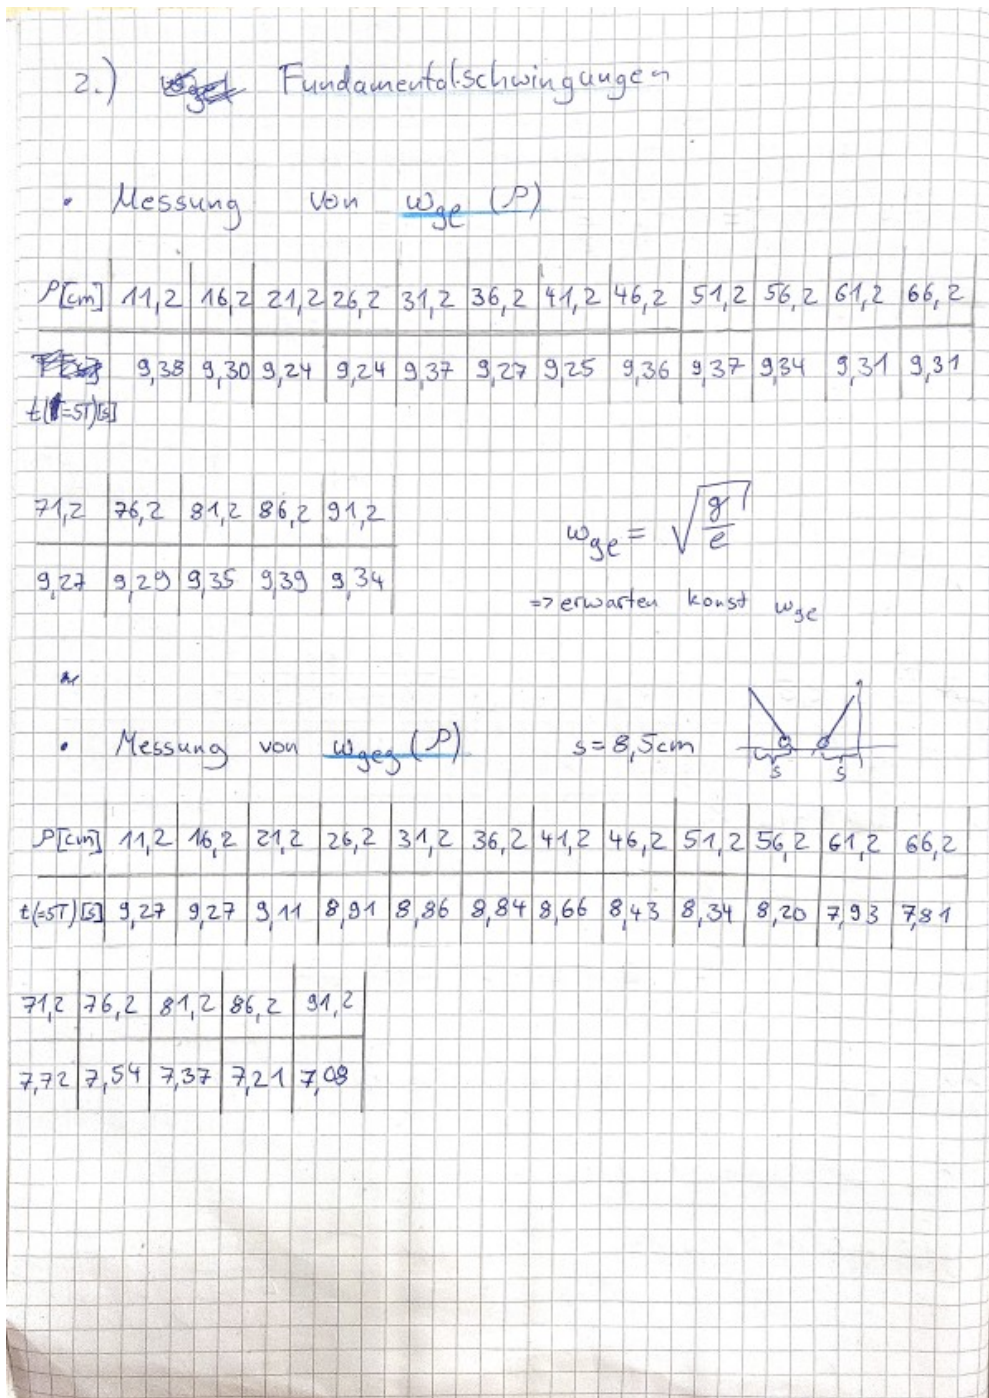 2.) Fundamentalschwingungen
• Messung von ω_ge (ρ)
ρ[cm] 11,2 16,2 21,2 26,2 31,2 36,2 41,2 46,2 51,2 56,2 61,2 66,2
9,38 9,30 9,24 9,24 9,37 9,27 9,25 9,36 9,37 9,34 9,31 9,31
t(=5T)[s]
71,2 76,2 81,2 86,2 91,2
9,27 9,29 9,35 9,39 9,34
ω_ge = √(g/e)
=> erwarten konst ω_ge
• Messung von ω_geg (ρ) s = 8,5cm
s s
ρ[cm] 11,2 16,2 21,2 26,2 31,2 36,2 41,2 46,2 51,2 56,2 61,2 66,2
t(=5T)[s] 9,27 9,27 9,11 8,91 8,86 8,84 8,66 8,43 8,34 8,20 7,93 7,81
71,2 76,2 81,2 86,2 91,2
7,72 7,54 7,37 7,21 7,08